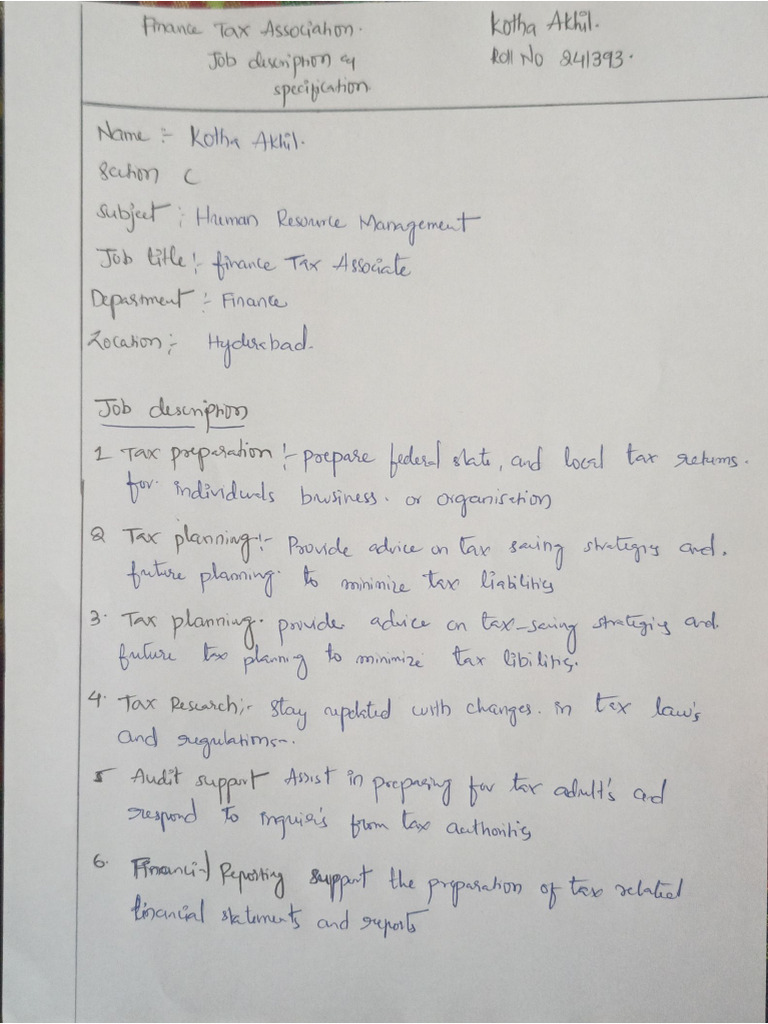 Finance Tax Association.
Kotha Akhil.
Job description &
Roll No 241393.
specification
Name :- Kotha Akhil.
Section C
Subject : Human Resource Management
Job title :- finance Tax Associate
Department :- Finance
Location :- Hyderabad.
Job description
1 Tax preparation :- prepare federal state, and local tax returns.
for individuals bwsiness. or organisation
2 Tax planning :- Provide advice on tax saving strategies and,
future planning. to minimize tax liabilities
3. Tax planning. provide advice on tax-saving strategies and.
future tax planning to minimize tax libilities.
4. Tax Research ;- stay updated with changes. in tax law's
and regulations-.
5 Audit support Assist in preparing for tax adult's and
respond to inquiris from tax authorities
6. Financial Reporting support the preparation of tax related
financial statements and reports